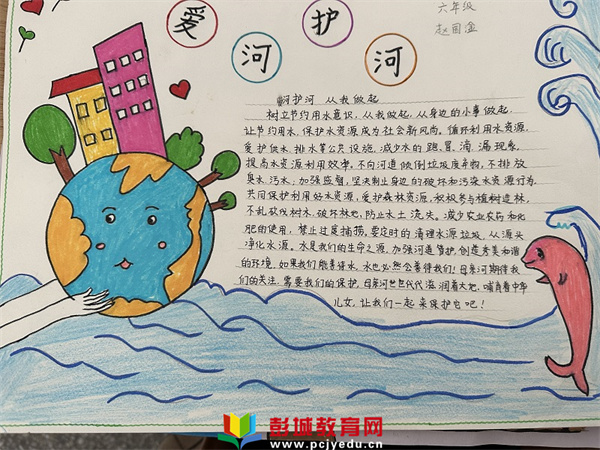 爱河护河
六年级
赵国渝
河护河 从我做起
树立节约用水意识,从我做起,从身边的小事做起,
让节约用水、保护水资源成为社会新风尚。循环利用水资源,
爱护供水、排水等公共设施,减少水的跑、冒、滴、漏现象,
提高水资源利用效率,不向河道倾倒垃圾废弃物,不排放
臭水、污水,加强监督,坚决制止身边的破坏和污染水资源行为,
共同保护利用好水资源,爱护森林资源,积极参与植树造林,
不乱砍伐树木、破坏林地,防止水土流失,减少农药和化
肥的使用,禁止过度捕捞,要定时的清理水源垃圾,从源头
净化水源,水是我们的生命之源,加强河道管护,创造秀美和谐
的环境,如果我们能善待水,水也必然会善待我们!母亲河期待我
们的关注,需要我们的保护,母亲河世世代代滋润着大地,哺育着中华
儿女,让我们一起来保护它吧!
彭城教育网
www.pcjyedu.cn